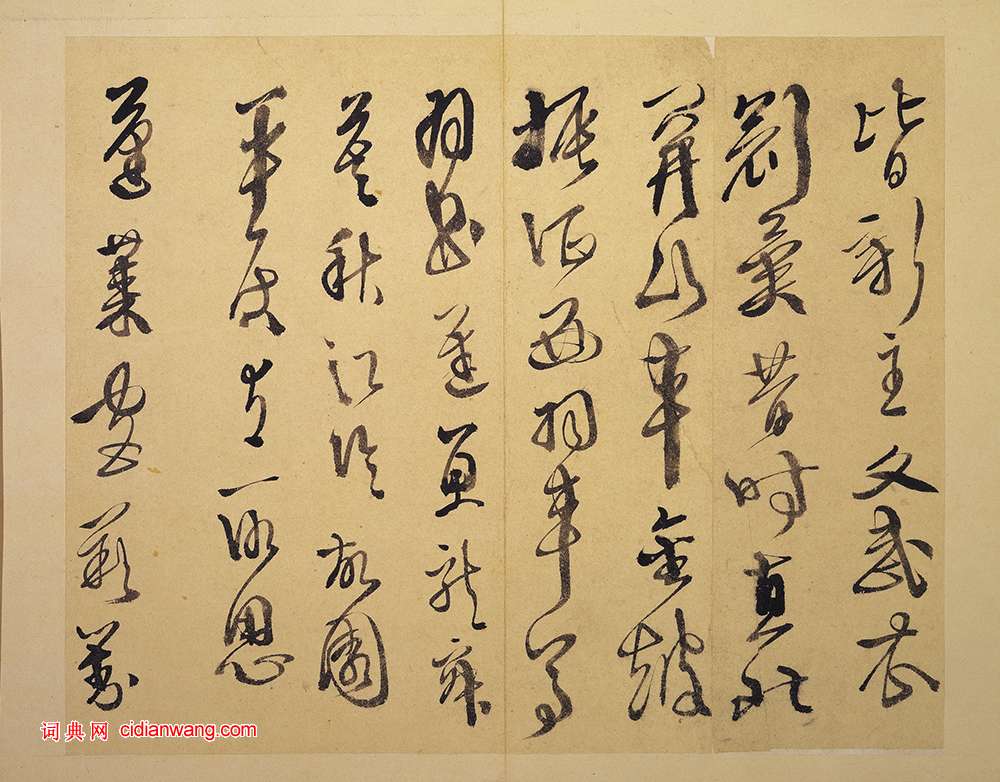 皆新主文武衣
冠異昔時直北
關山車金鼓
振征西羽車馬
羽書遲魚龍寂
寞秋江冷故國
平居有所思
蓬萊宮闕對
词典网 cidianwang.com